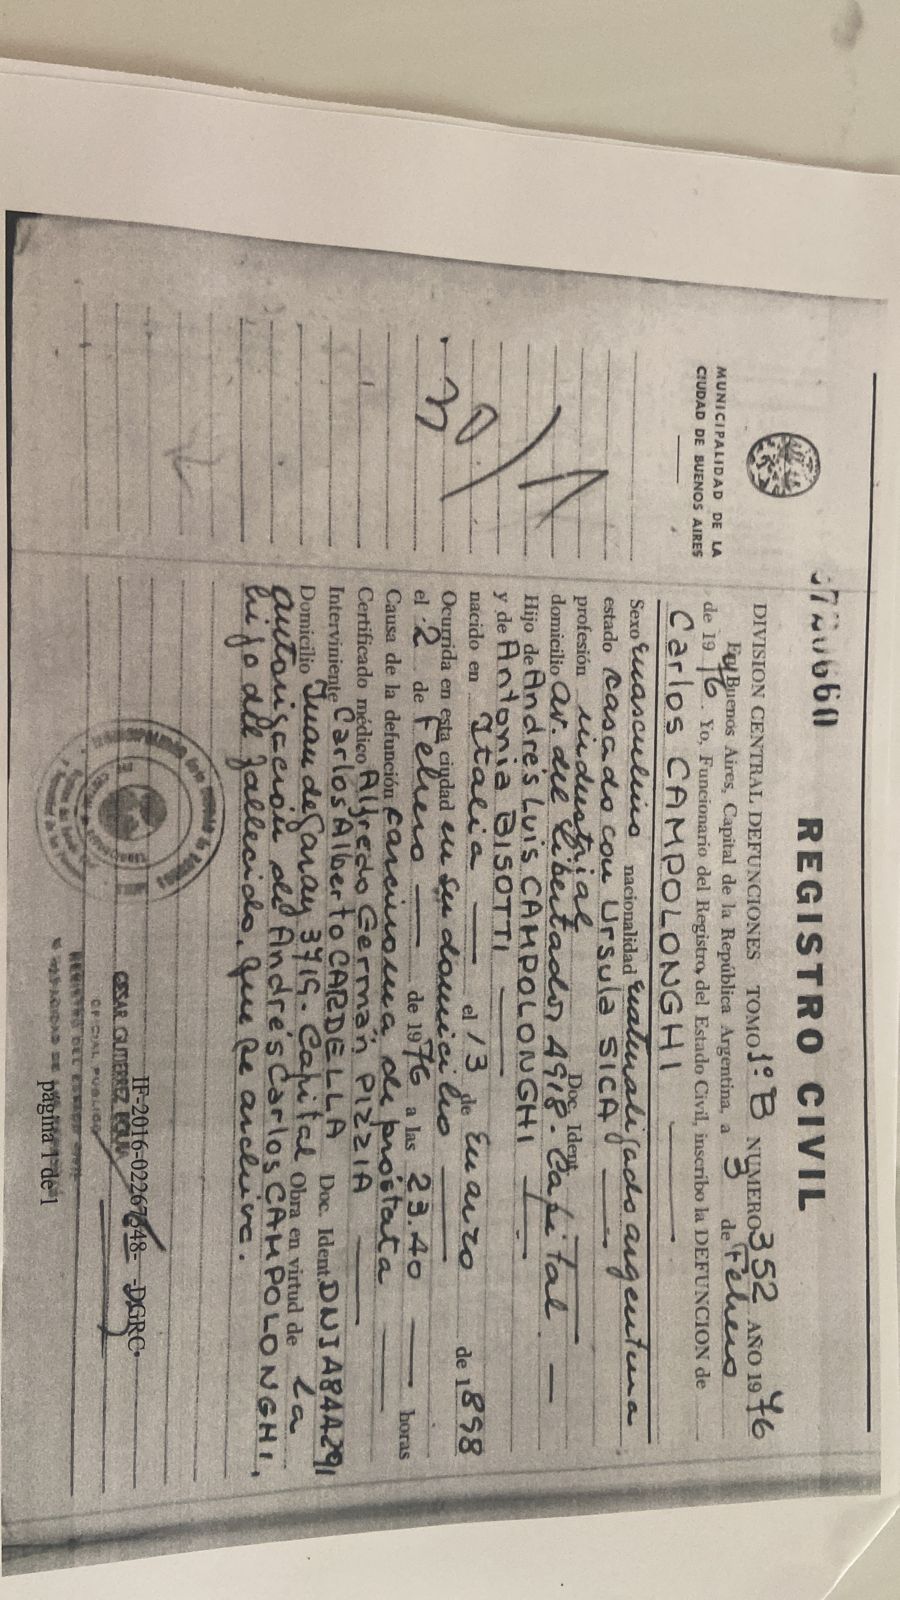 MUNICIPALIDAD DE LA
CIUDAD DE BUENOS AIRES
REGISTRO CIVIL
DIVISION CENTRAL DEFUNCIONES TOMO 1º B NUMERO 352 AÑO 1976
En Buenos Aires, Capital de la República Argentina, a 3 de Febrero
de 1976. Yo, Funcionario del Registro del Estado Civil, inscribo la DEFUNCION de
Carlos CAMPOLONGHI
Sexo masculino nacionalidad naturalizado argentina
estado casado con Ursula SICA
profesión industrial Doc. Ident.
domicilio av. del Libertador 4918 - Capital.
Hijo de Andrés Luis CAMPOLONGHI
y de Antonia BISOTTI
nacido en Italia el 13 de Enero de 1898
Ocurrida en esta ciudad en su domicilio
el 2 de Febrero de 1976 a las 23.40 horas
Causa de la defunción Carcinoma de próstata
Certificado médico Alfredo Germán PIZZIA
Interviniente Carlos Alberto CARDELLA Doc. Ident. DNI 4844291
Domicilio Juan de Garay 3719 - Capital Obra en virtud de la
autorización de Andrés Carlos CAMPOLONGHI,
hijo del fallecido, que se archiva.
OFICIAL PUBLICO
-DGRC
página 1 de 1